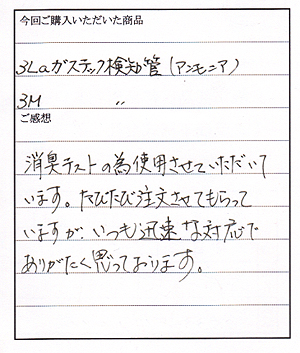 今回ご購入いただいた商品
3Laガステック検知管(アンモニア)
3M 〃
ご感想
消臭テストの為使用させていただいて
います。たびたび注文させてもらって
いますが、いつも迅速な対応で
ありがたく思っております。